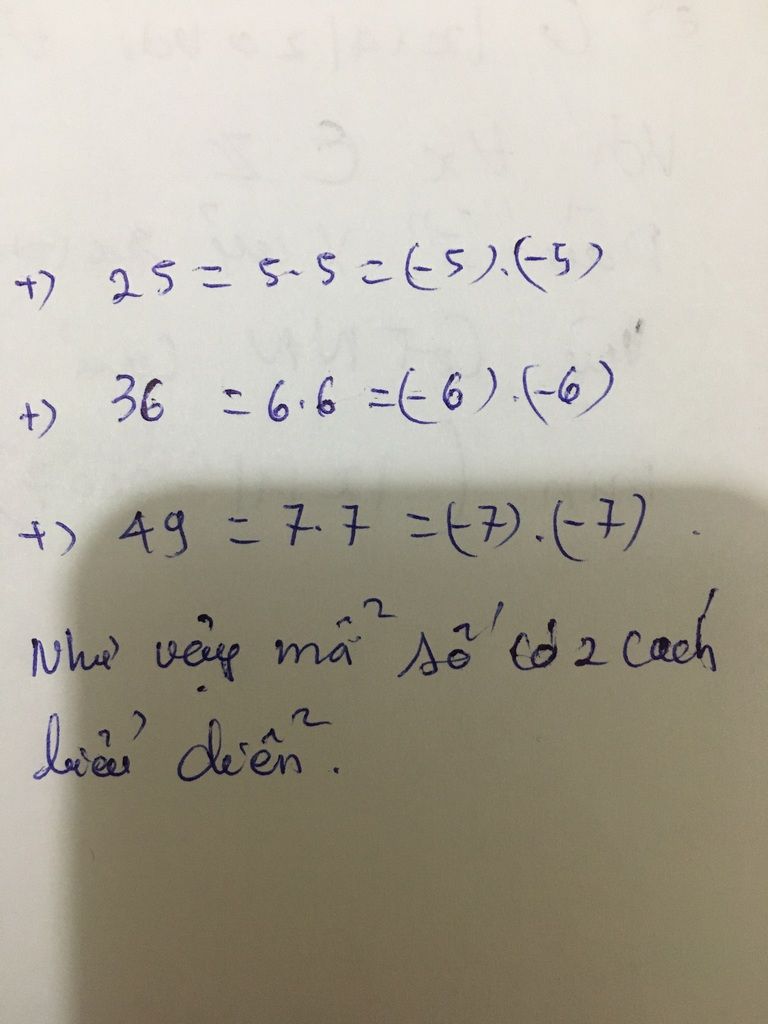 +) 25 = 5.5 = (-5).(-5)
+) 36 = 6.6 = (-6).(-6)
+) 49 = 7.7 = (-7).(-7).
Như vậy mỗi số có 2 cách
biểu diễn.